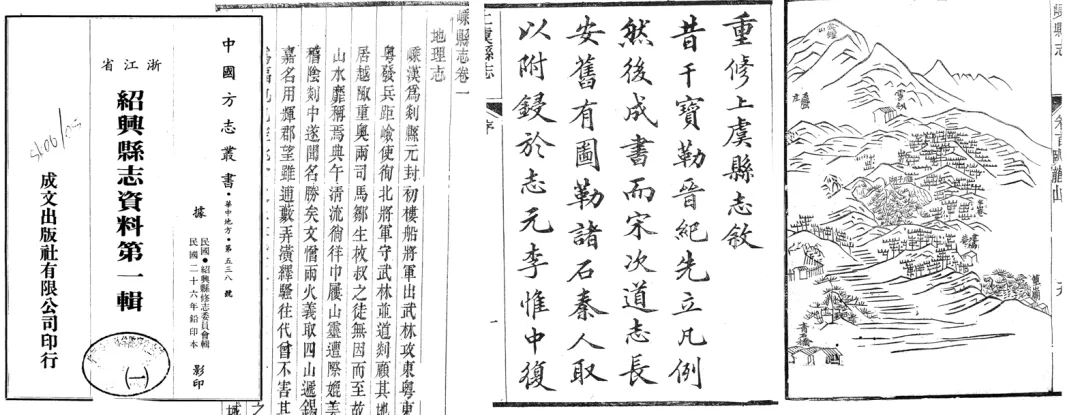 中國方志叢書・華中地方・第五三八號
據
民國・紹興縣修志委員會輯
民國二十六年鉛印本
影印
浙江省
紹興縣志資料第一輯
成文出版社有限公司印行
(一)
嵊縣志卷一
地理志
嵊漢爲剡縣元封初樓船將軍出武林攻東粵東
粵發兵距嶮使徇北將軍守武林並道剡顧其地
居越陬重奧兩司馬鄒生枚叔之徒無因而至故
山水靡稱焉典午清流徜徉巾屨山靈遭際媲美
稽陰剡中遂聞名勝矣文懵兩火義取四山遞錫
嘉名用輝郡望雖逋藪弄潢繹騷往代曾不害其
重修上虞縣志敘
昔干寶勒晉紀先立凡例
然後成書而宋次道志長
安舊有圖勒諸石秦人取
以附鋟於志元李惟中復
上虞縣志
序
一
嵊縣志